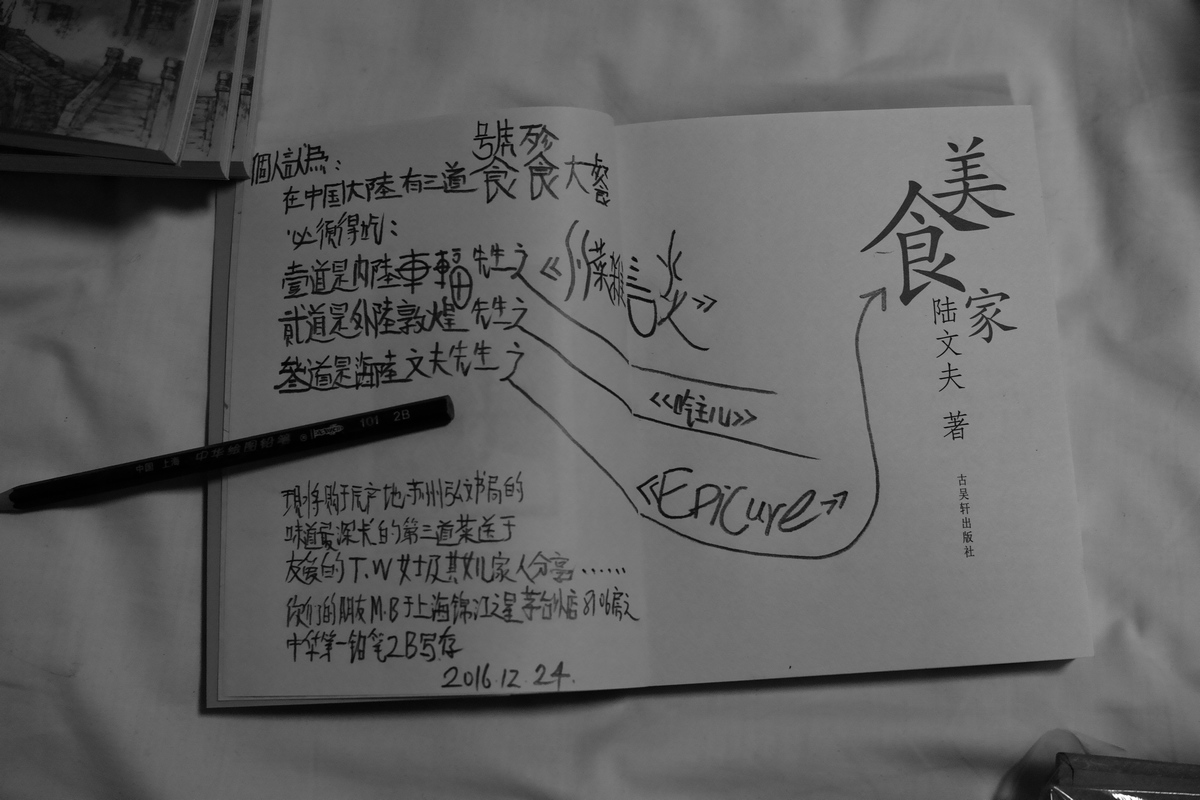 個人認為：
在中国大陸有三道饕餮大餐
必須得吃：
壹道是内陸車輻先生之《川菜雜談》
貳道是外陸敦煌先生之《吃主儿》
叁道是海陸文夫先生之《EPiCure》
中国 上海 中华绘图铅笔 101 2B
现将购于原产地苏州弘文书局的
味道最深长的第三道菜送于
友爱的T.W女士及其女儿家人分享……
你们的朋友M.B于上海锦江之星茅台北店8106房之
中华第一铅笔2B写存
2016.12.24.
美食家
陆文夫 著
古吴轩出版社